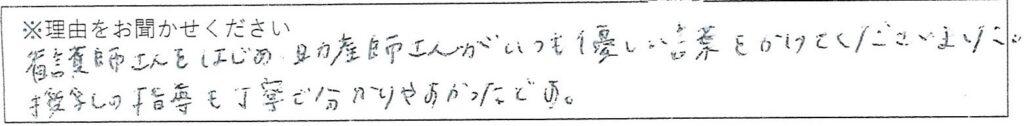 ※理由をお聞かせください
看護師さんをはじめ、助産師さんがいつも優しい言葉をかけてくださいました。
授乳の指導も丁寧で分かりやすかったです。